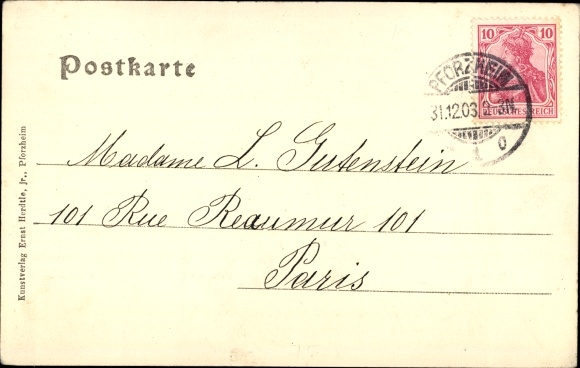 Postkarte
10 10
DEUTSCHES REICH
PFORZHEIM
31.12.03 2-3N
Madame L. Gutenstein
101 Rue Reaumur 101
Paris
Kunstverlag Ernst Herdtle, jr., Pforzheim